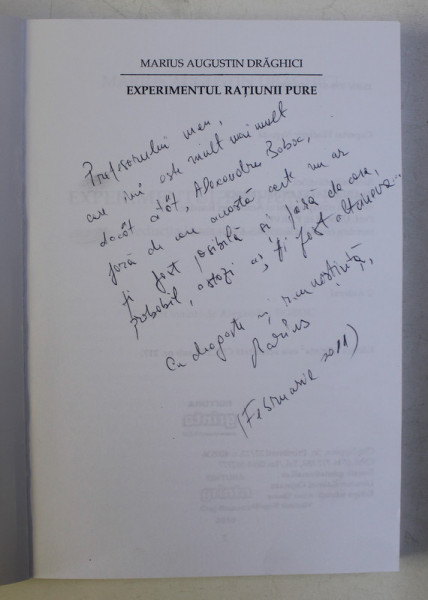 MARIUS AUGUSTIN DRĂGHICI
EXPERIMENTUL RAȚIUNII PURE
Profesorului meu,
care îmi este mult mai mult
decât atât, Alexandru Boboc,
fără de care această carte nu ar
fi fost posibilă și fără de care,
probabil, astăzi aș fi fost altcineva...
Cu dragoste și recunoștință,
Marius
(Februarie 2011)